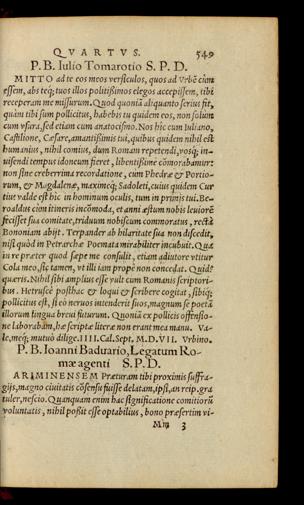 QVARTVS. 549
P. B. Iulio Tomarotio S. P. D.
MITTO ad te eos meos versiculos, quos ad Vrbē cùm
essem, abs teq́; tuos illos politißimos elegos accepissem, tibi
receperam me missurum. Quod quoniā aliquanto serius fit,
quàm tibi sum pollicitus, habebis tu quidem eos, non solùm
cum vsura, sed etiam cum anatocismo. Nos hîc cum Iuliano,
Castilione, Cæsare, amantißimis tui, quibus quidem nihil est
humanius, nihil comius, dum Romam repetendi, vosq́; in-
uisendi tempus idoneum fieret, libentißimè cōmorabamur:
non sine creberrima recordatione, cum Phedræ & Portio-
rum, & Magdalenæ, maximeq́; Sadoleti, cuius quidem Cur
tius valde est hîc in hominum oculis, tum in primis tui. Be-
roaldus cùm itineris incōmoda, et anni æstum nobis leuiorē
fecisset sua comitate, triduum nobiscum commoratus, rectà
Bononiam abijt. Terpander ab hilaritate sua non discedit,
nisi quòd in Petrarchæ Poemata mirabiliter incubuit. Qua
in re præter quod sæpe me consulit, etiam adiutore vtitur
Cola meo, sic tamen, vt illi iam propè non concedat. Quid?
quæris. Nihil sibi amplius esse vult cum Romanis scriptori-
bus. Hetruscè posthac & loqui & scribere cogitat, sibiq́;
pollicitus est, si eò neruos intenderit suos, magnum se poetā
illorum lingua breui futurum. Quoniā ex pollicis offensio-
ne laborabam, hæ scriptæ literæ non erant mea manu. Va-
le, meq́; mutuò dilige. IIII. Cal. Sept. M. D. VII. Vrbino.
P. B. Ioanni Baduario, Legatum Ro-
mæ agenti S. P. D.
ARIMINENSEM Præturam tibi proximis suffra-
gijs, magno ciuitatis cōsensu fuisse delatam, ipsi, an reip. gra
tuler, nescio. Quanquam enim hac significatione comitiorū
voluntatis, nihil poßit esse optabilius, bono præsertim vi-
Mm 3